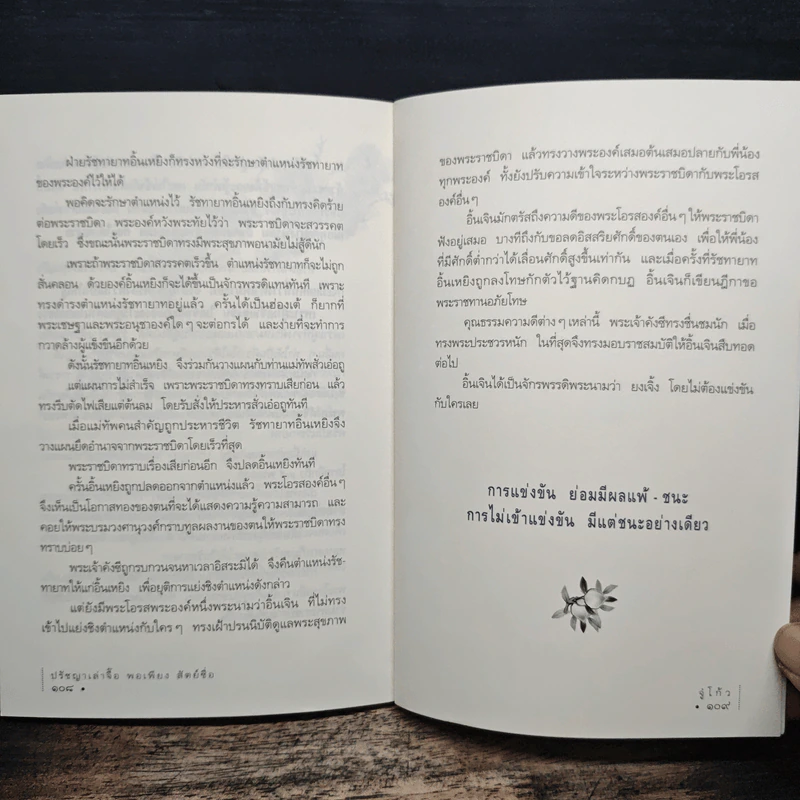 ฝ่ายรัชทายาทอิ้นเหยิงก็ทรงหวังที่จะรักษาตำแหน่งรัชทายาท
ของพระองค์ไว้ให้ได้
พอคิดจะรักษาตำแหน่งไว้ รัชทายาทอิ้นเหยิงถึงกับทรงคิดร้าย
ต่อพระราชบิดา พระองค์หวังพระทัยไว้ว่า พระราชบิดาจะสวรรคต
โดยเร็ว ซึ่งขณะนั้นพระราชบิดาทรงมีพระสุขภาพอนามัยไม่สู้ดีนัก
เพราะถ้าพระราชบิดาสวรรคตเร็วขึ้น ตำแหน่งรัชทายาทก็จะไม่ถูก
สั่นคลอน ด้วยองค์อิ้นเหยิงก็จะได้ขึ้นเป็นจักรพรรดิแทนทันที เพราะ
ทรงดำรงตำแหน่งรัชทายาทอยู่แล้ว ครั้นได้เป็นฮ่องเต้ ก็ยากที่
พระเชษฐาและพระอนุชาองค์ใดๆ จะต่อกรได้ และง่ายที่จะทำการ
กวาดล้างผู้แข็งขืนอีกด้วย
ดังนั้นรัชทายาทอิ้นเหยิง จึงร่วมกันวางแผนกับท่านแม่ทัพสั่วเอ๋อถู
แต่แผนการไม่สำเร็จ เพราะพระราชบิดาทรงทราบเสียก่อน แล้ว
ทรงรีบตัดไฟเสียแต่ต้นลม โดยรับสั่งให้ประหารสั่วเอ๋อถูทันที
เมื่อแม่ทัพคนสำคัญถูกประหารชีวิต รัชทายาทอิ้นเหยิงจึง
วางแผนยึดอำนาจจากพระราชบิดาโดยเร็วที่สุด
พระราชบิดาทราบเรื่องเสียก่อนอีก จึงปลดอิ้นเหยิงทันที
ครั้นอิ้นเหยิงถูกปลดออกจากตำแหน่งแล้ว พระโอรสองค์อื่นๆ
จึงเห็นเป็นโอกาสทองของตนที่จะได้แสดงความรู้ความสามารถ และ
คอยให้พระบรมวงศานุวงศ์กราบทูลผลงานของตนให้พระราชบิดาทรง
ทราบบ่อยๆ
พระเจ้าคังซีถูกรบกวนจนหาเวลาอิสระมิได้ จึงคืนตำแหน่งรัช-
ทายาทให้แก่อิ้นเหยิง เพื่อยุติการแย่งชิงตำแหน่งดังกล่าว
แต่ยังมีพระโอรสพระองค์หนึ่งพระนามว่าอิ้นเจิน ที่ไม่ทรง
เข้าไปแย่งชิงตำแหน่งกับใครๆ ทรงเฝ้าปรนนิบัติดูแลพระสุขภาพ
ปรัชญาเล่าจื๊อ พอเพียง สัตย์ซื่อ
๑๐๘ •
ของพระราชบิดา แล้วทรงวางพระองค์เสมอต้นเสมอปลายกับพี่น้อง
ทุกพระองค์ ทั้งยังปรับความเข้าใจระหว่างพระราชบิดากับพระโอรส
องค์อื่นๆ
อิ้นเจินมักตรัสถึงความดีของพระโอรสองค์อื่นๆ ให้พระราชบิดา
ฟังอยู่เสมอ บางทีถึงกับขอลดอิสสริยศักดิ์ของตนเอง เพื่อให้พี่น้อง
ที่มีศักดิ์ต่ำกว่าได้เลื่อนศักดิ์สูงขึ้นเท่ากัน และเมื่อครั้งที่รัชทายาท
อิ้นเหยิงถูกลงโทษกักตัวไว้ฐานคิดกบฏ อิ้นเจินก็เขียนฎีกาขอ
พระราชทานอภัยโทษ
คุณธรรมความดีต่างๆ เหล่านี้ พระเจ้าคังซีทรงชื่นชมนัก เมื่อ
ทรงพระประชวรหนัก ในที่สุดจึงทรงมอบราชสมบัติให้อิ้นเจินสืบทอด
ต่อไป
อิ้นเจินได้เป็นจักรพรรดิพระนามว่า ยงเจิ้ง โดยไม่ต้องแข่งขัน
กับใครเลย
การแข่งขัน ย่อมมีผลแพ้ - ชนะ
การไม่เข้าแข่งขัน มีแต่ชนะอย่างเดียว
จู่โก้ว
• ๑๐๙